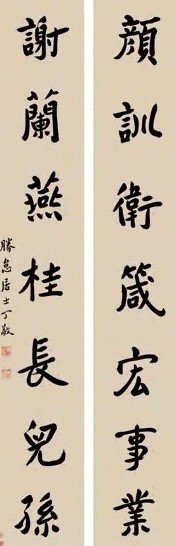 顔訓衛箴宏事業
謝蘭燕桂長兒孫
勝怠居士丁敬